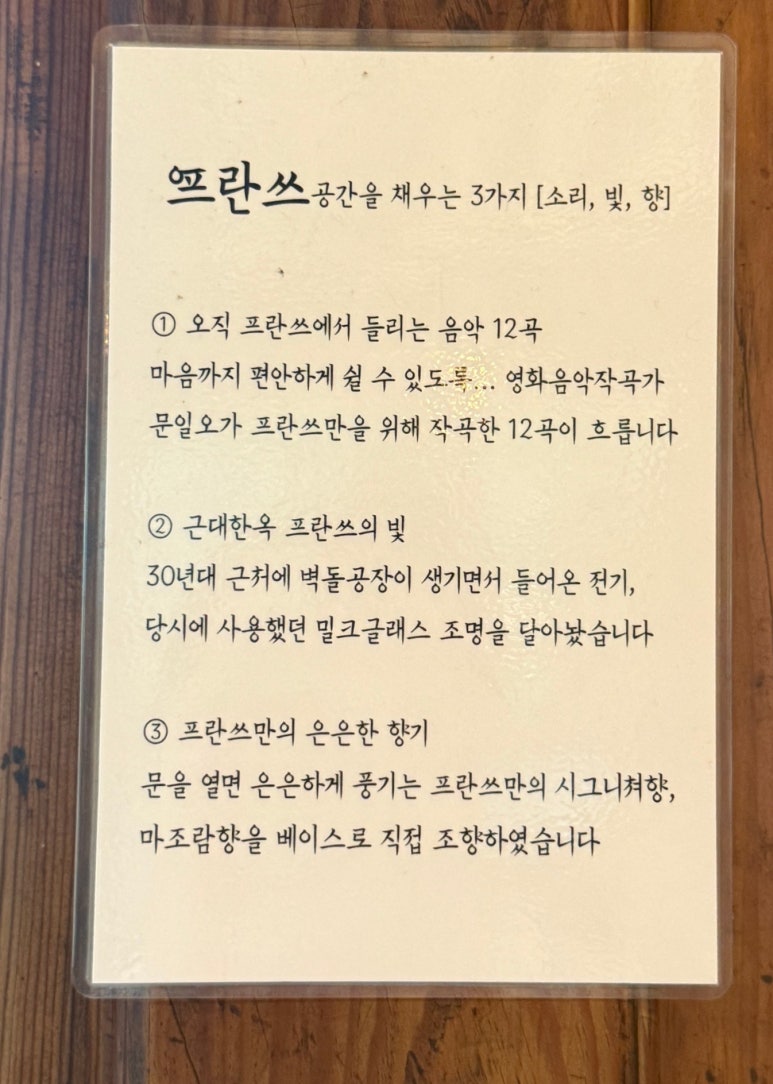 프란쓰 공간을 채우는 3가지 [소리, 빛, 향]
① 오직 프란쓰에서 들리는 음악 12곡
마음까지 편안하게 쉴 수 있도록... 영화음악작곡가
문일오가 프란쓰만을 위해 작곡한 12곡이 흐릅니다
② 근대한옥 프란쓰의 빛
30년대 근처에 벽돌공장이 생기면서 들어온 전기,
당시에 사용했던 밀크글래스 조명을 달아놨습니다
③ 프란쓰만의 은은한 향기
문을 열면 은은하게 풍기는 프란쓰만의 시그니쳐향,
마조람향을 베이스로 직접 조향하였습니다